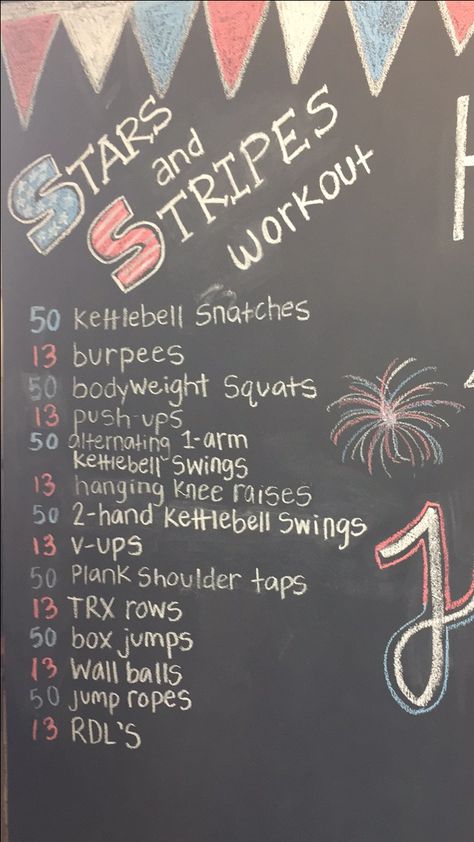 STARS
and
STRIPES
workout
50 kettlebell snatches
13 burpees
50 bodyweight squats
13 push-ups
50 alternating 1-arm
kettlebell swings
13 hanging knee raises
50 2-hand kettlebell swings
13 v-ups
50 Plank shoulder taps
13 TRX rows
50 box jumps
13 Wall balls
50 jump ropes
13 RDL'S